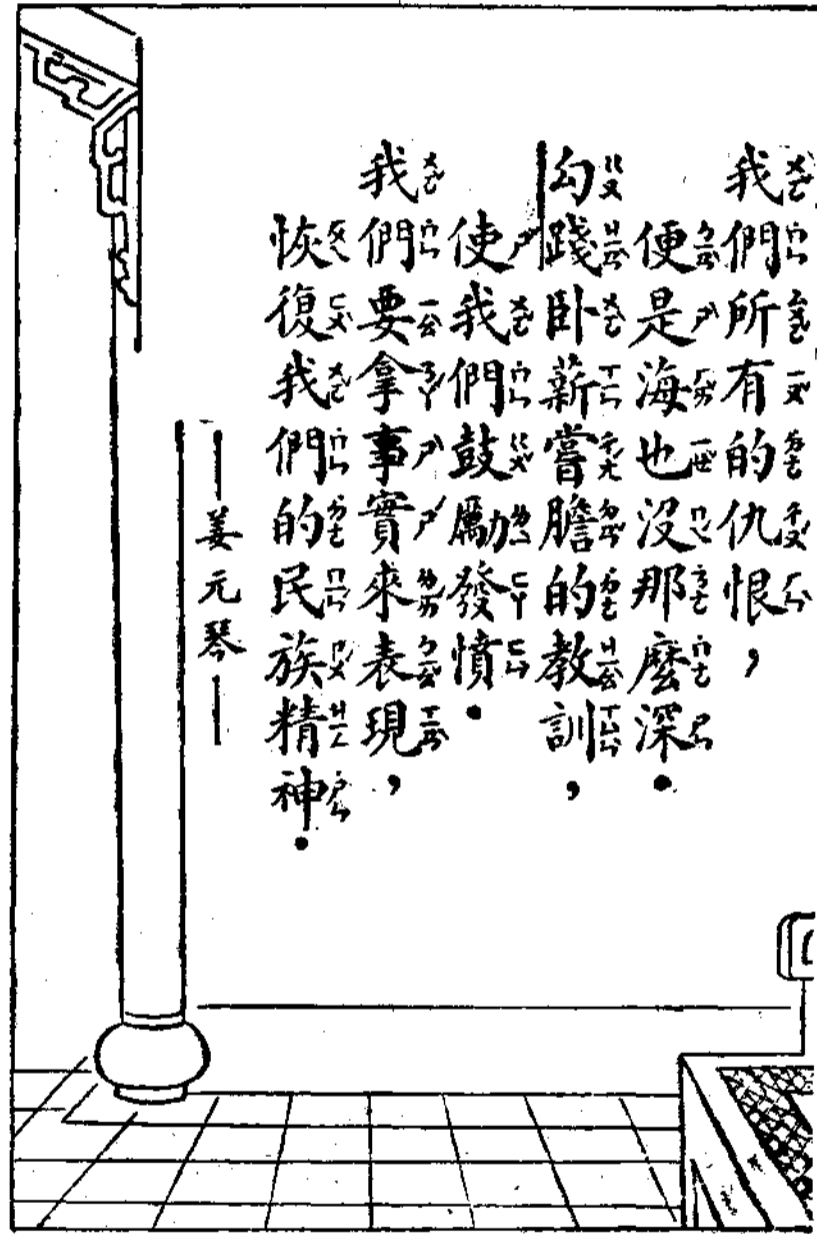 我們所有的仇恨，
便是海也沒那麼深．
勾踐臥薪嘗膽的教訓，
使我們鼓勵發憤．
我們要拿事實來表現，
恢復我們的民族精神．
——姜元琴——